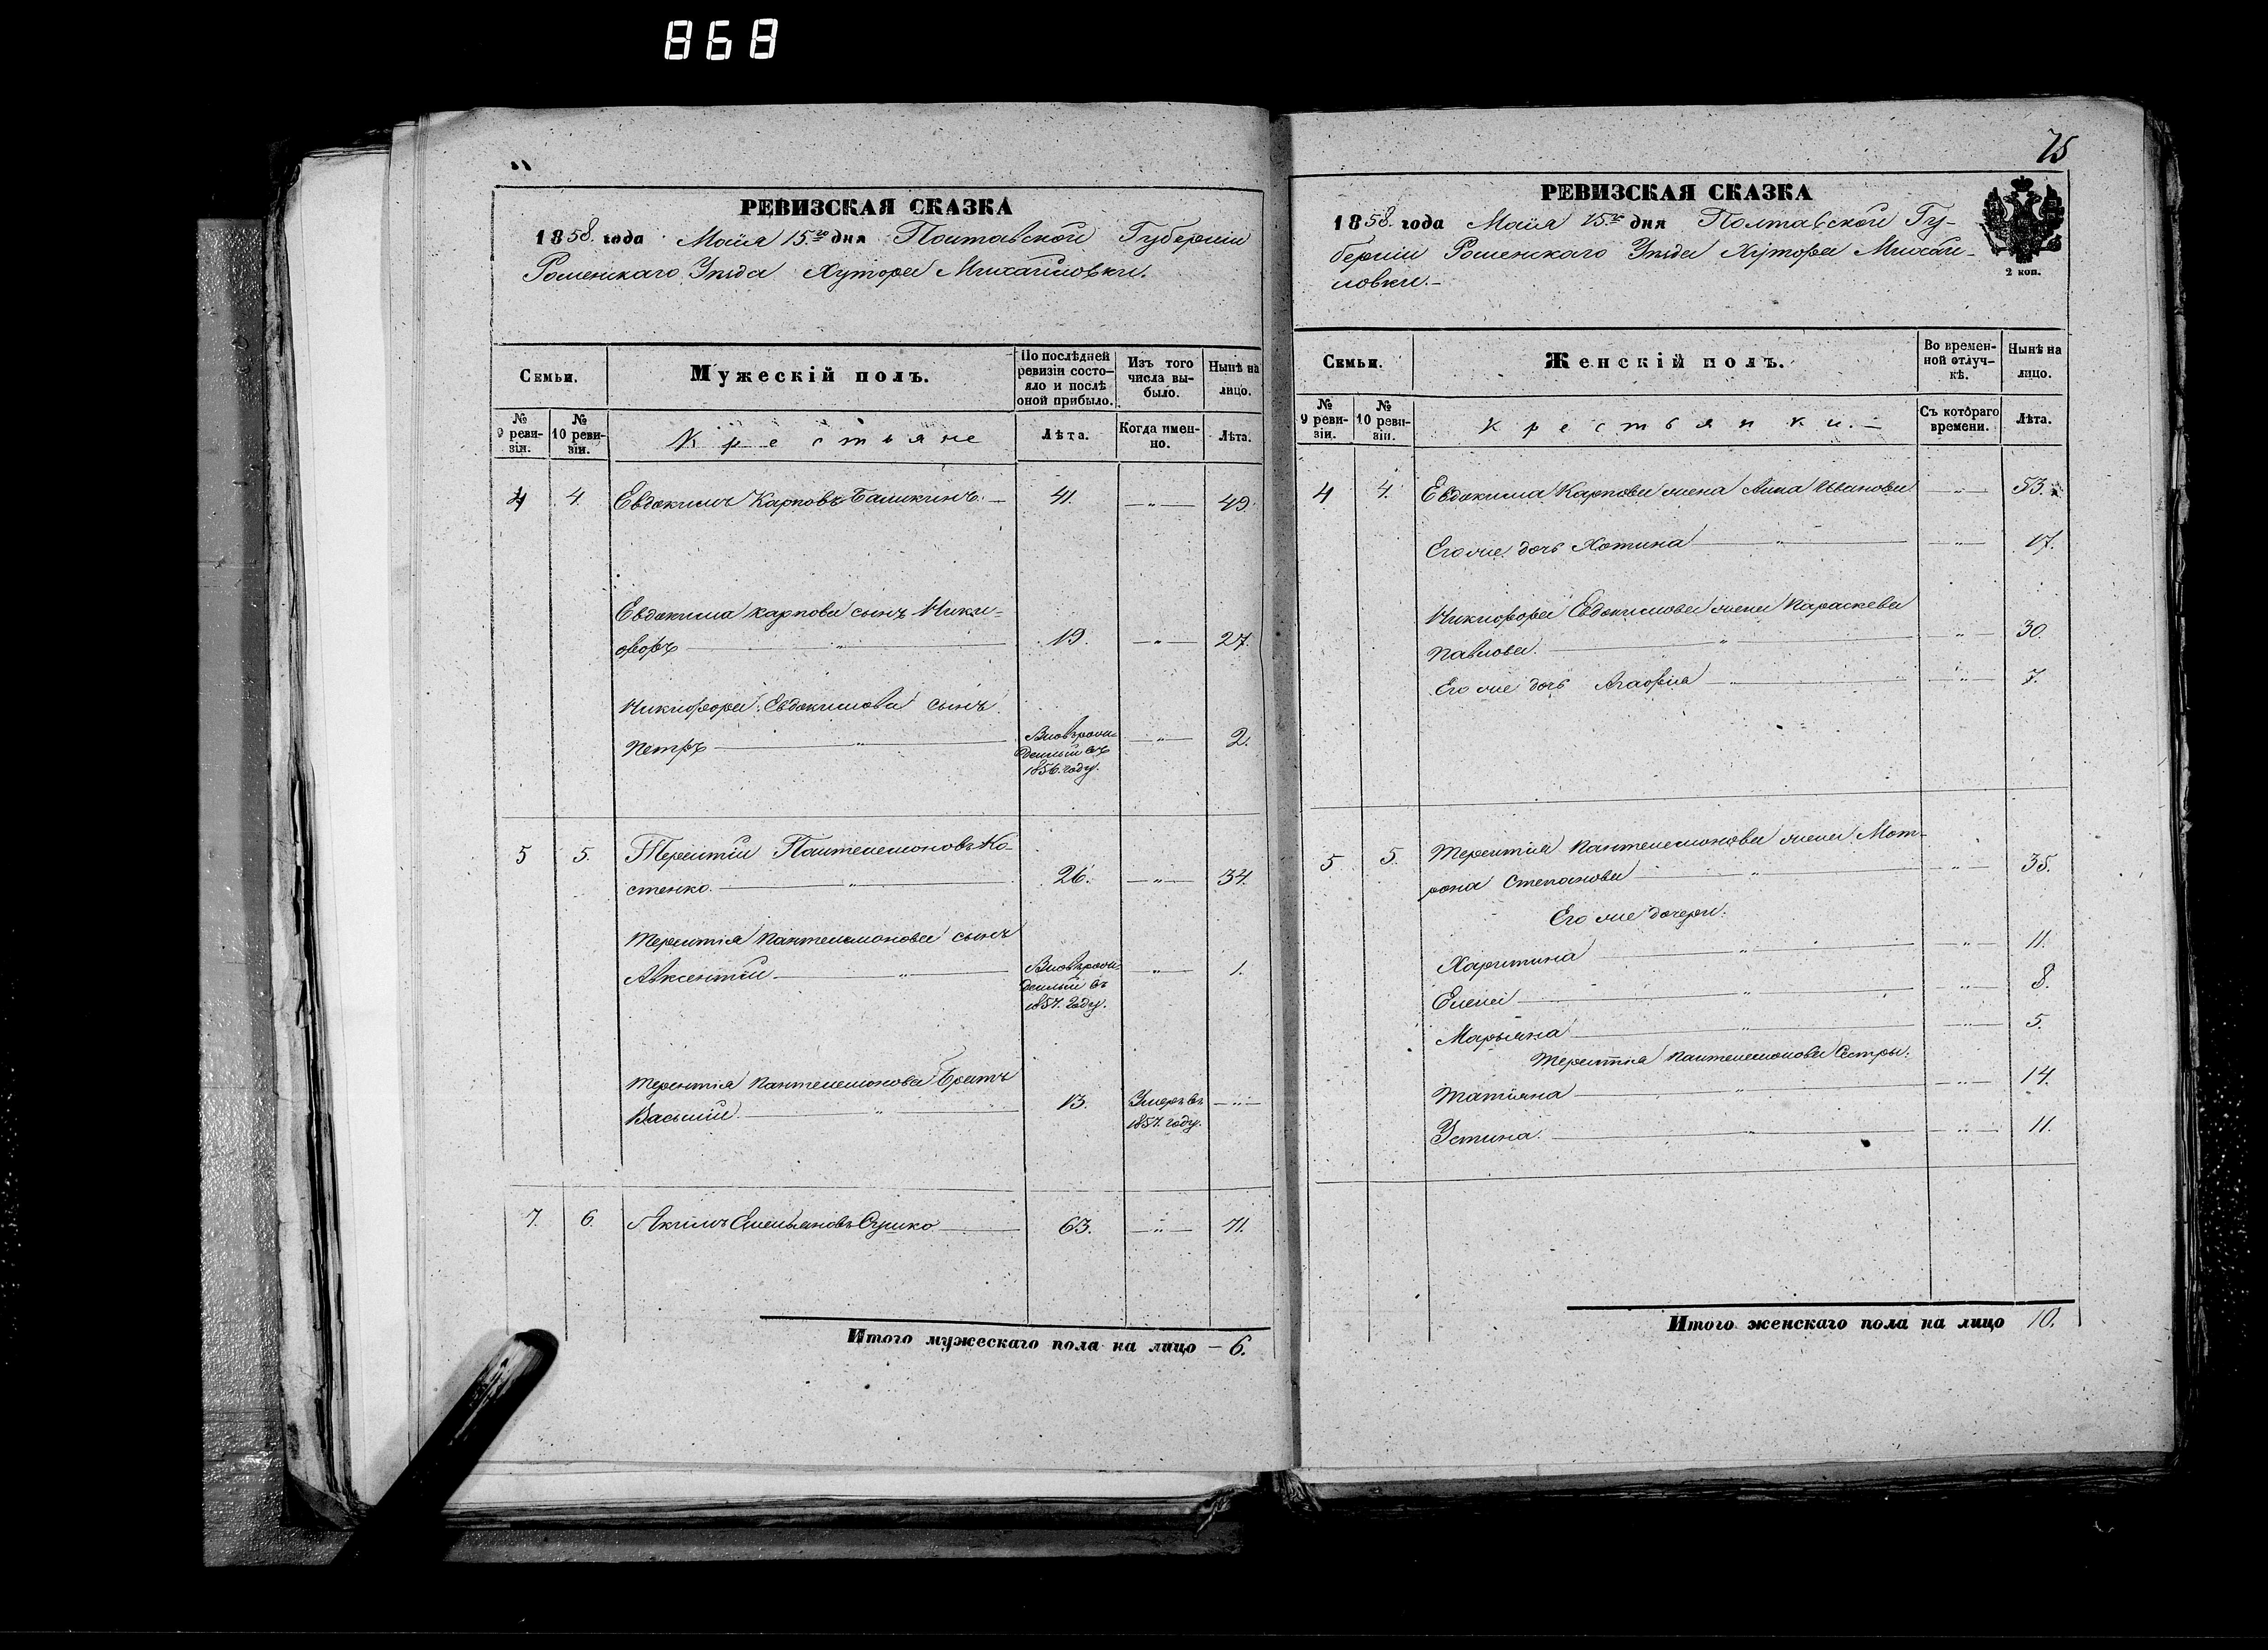 868
РЕВИЗСКАЯ СКАЗКА
1858. года Маія 15.го дня Полтавской Губерніи
Роменскаго Уѣзда Хутора Михайловки.
Семьи.
Мужескій полъ.
По послѣдней ревизіи состояло и послѣ оной прибыло.
Изъ того числа выбыло.
Нынѣ на лицо.
№ 9 ревизіи.
№ 10 ревизіи.
Крестьяне
Лѣта.
Когда именно.
Лѣта.
4 4. Евдокимъ Карповъ Башкинъ. — 41. — „ — 49.
Евдокима Карпова сынъ Ники-
форъ — „ — 19 — „ — 27.
Никифора Евдокимова сынъ
Петръ — „ — Вновьрож-
денный въ
1856. году. — „ — 2.
5 5. Терентій Пантелемоновъ Ко-
стенко. — „ — 26. — „ — 34.
Терентія Пантелемонова сынъ
Авксентій — „ — Вновьрож-
денный въ
1857. году. — „ — 1.
Терентія Пантелемонова братъ
Василій. — „ — 13. Умеръ въ
1857. году. — „ —
7. 6. Акимъ Емельяновъ Сушко — 63. — „ — 71.
Итого мужескаго пола на лицо — 6.
75
РЕВИЗСКАЯ СКАЗКА
1858. года Маія 15.го дня Полтавской Гу-
берніи Роменскаго Уѣзда Хутора Михай-
ловки. —
2 коп.
Семьи.
Женскій полъ.
Во временной отлучкѣ.
Нынѣ на лицо.
№ 9 ревизіи.
№ 10 ревизіи.
Крестьянки. —
Съ котораго времени.
Лѣта.
4 4. Евдокима Карпова жена Анна Иванова — „ — 53.
Его же дочь Хотина — „ — „ — 17.
Никифора Евдокимова жена Параскева
Павлова. — „ — „ — 30.
Его же дочь Агафія — „ — „ — 7.
5 5. Терентія Пантелемонова жена Мот-
рона Степанова — „ — „ — 35.
Его же дочери:
Харитина — „ — „ — 11.
Елена — „ — „ — 8.
Марьяна — „ — „ — 5.
Терентія Пантелемонова Сестры:
Татіяна — „ — „ — 14.
Устина. — „ — „ — 11.
Итого женскаго пола на лицо 10.